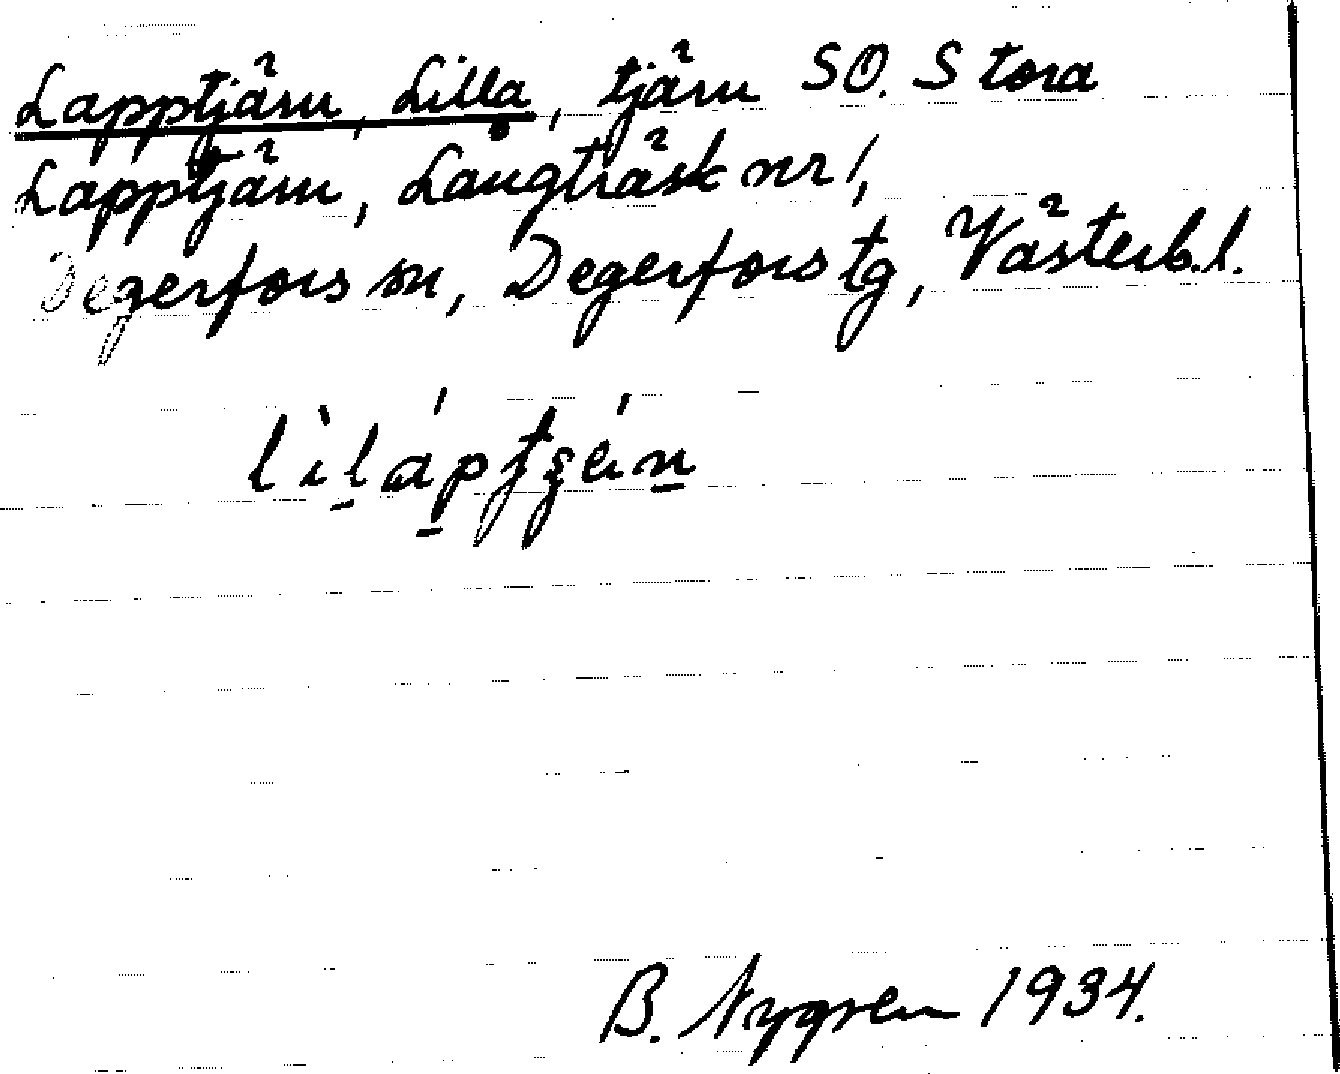 Lapptjärn, Lilla, tjärn SO. Stora
Lapptjärn, Långträsk nr 1,
Degerfors sn, Degerfors tg, Västerb.l.
B. Nygren 1934.